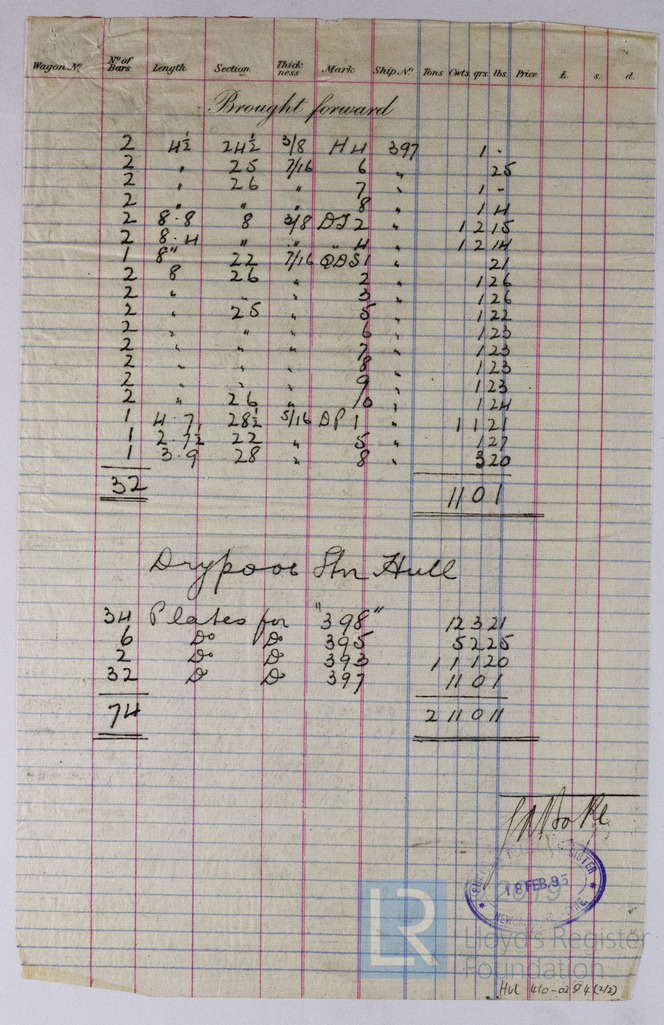 Wagon No. No. of Bars Length Section Thickness Mark Ship No. Tons Cwts. qrs. lbs. Price £. s. d.
Brought forward
2 4½ 24½ 3/8 H 4 397 1 -
2 " 25 7/16 6 " 25
2 " 26 7 " 1 -
2 " " 8 " 1 4
2 8·8 8 3/8 DJ 2 " 1 2 15
2 8·4 " " " 4 " 1 2 14
1 8" 22 7/16 1 " 21
2 8 26 " 2 " 1 26
2 " " " 3 " 1 26
2 " 25 " 5 " 1 22
2 " " " 6 " 1 23
2 " " " 7 " 1 23
2 " " " 8 " 1 23
2 " " " 9 " 1 23
2 " 26 " 10 " 1 24
1 4·7 28½ 5/16 DP 1 " 1 1 21
1 2·7½ 22 " 5 " 1 27
1 3·9 28 " 8 " 3 20
32 11 0 1
Drypool Stn Hull
34 Plates for "398" 12 3 21
6 Do Do 395 5 2 25
2 Do Do 393 1 1 1 20
32 Do Do 397 11 0 1
74 2 11 0 11
18 FEB. 95
LR
Lloyd's Register
Foundation
HUL 410-0294 (2/2)